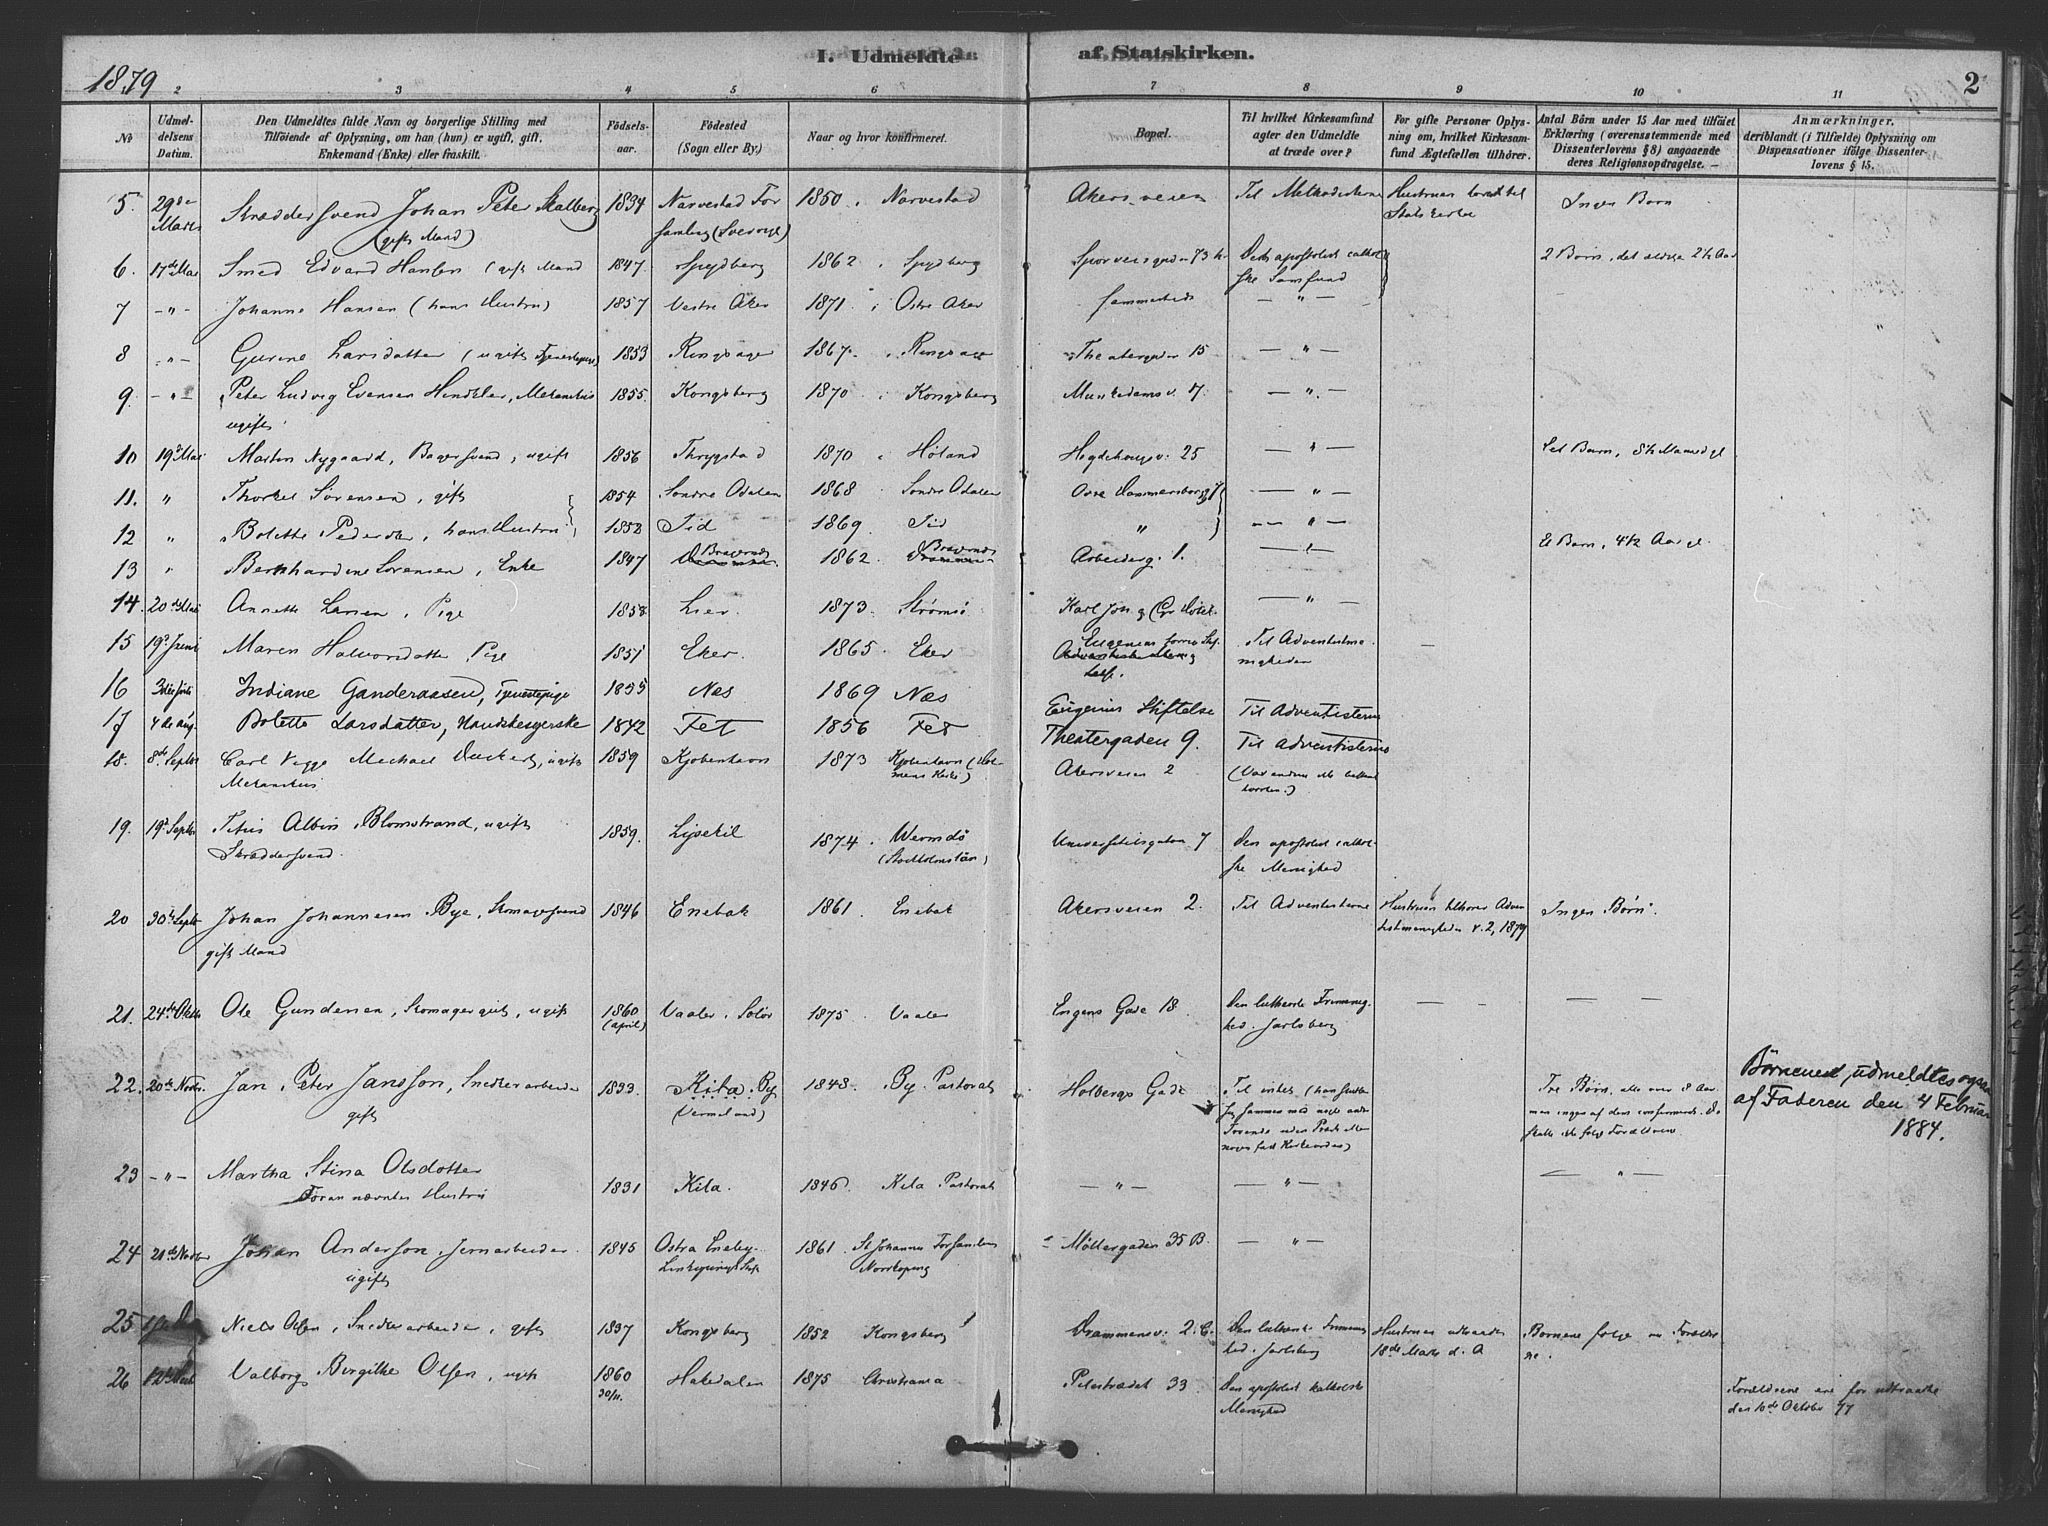 I. Udmeldte af Statskirken.
1879
2
2 3 4 5 6 7 8 9 10 11
№ | Udmeldelsens Datum. | Den Udmeldtes fulde Navn og borgerlige Stilling med Tilføiende af Oplysning, om han (hun) er ugift, gift, Enkemand (Enke) eller fraskilt. | Fødselsaar. | Fødested (Sogn eller By.) | Naar og hvor konfirmeret. | Bopæl. | Til hvilket Kirkesamfund agter den Udmeldte at træde over? | For gifte Personer Oplysning om, hvilket Kirkesamfund Ægtefællen tilhører. | Antal Børn under 15 Aar med tilføiet Erklæring (overensstemmende med Dissenterlovens § 8) angaaende deres Religionsopdragelse. | Anmærkninger, deriblandt (i Tilfælde) Oplysning om Dispensationer ifølge Dissenterlovens § 15.
5. 29de Marts Skræddersvend Johan Peter (gift Mand) 1834 Narvestad Forsamling (Sverige) 1850 Narvestad Akersveien Til Methodisterne Hustruen Statskirke Ingen Børn
6. 17de Mai Smed Edvard Hansen (gift Mand 1847 Spydberg 1862 Spydberg Sporveisgaden 73 Den apostolisk catholske Samfund 2 Børn, det ældste 2½ Aar
7 -"- Johanne Hansen (hans Hustru) 1857 Vestre Aker 1871 Østre Aker sammesteds -"-
8 -"- Gurine Larsdatter (ugift Tjenestepige) 1853 Ringsager 1867 Ringsager Theatergaden 15 -"-
9. -"- Peter Ludvig Evensen, Mekanikus ugift 1855. Kongsberg 1870 Kongsberg Munkedamsv. 7 -"-
10 19de Mai Morten Nygaard, Bagersvend, ugift 1856 Thrygstad 1870 Høland Hegdehaugsv. 25 -"- Et Barn, 8½ Maaned gl
11. " Thorkel Sørensen, gift 1854 Søndre Odalen 1868 Søndre Odalen -"-
12 " Bolette Pedersdtr, hans Hustru 1852 1869 " -"- Et Barn, 4½ Aar gl.
13 " Bernhardine Sørensen, Enke 1847 Bragernæs 1862 Bragernæs Arbeiderg. 1. -"-
14. 20de Mai Annette Larsen, Pige 1858 Lier. 1873 Strømsø Karl Joh. g -"-
15 19de Juni Maren Halvorsdatter Pige 1851 Eker. 1865 Eker Eugenias Til Adventistmenigheden -
16 3die Juli Indiane Ganderaasen, Tjenestepige 1855 Næs 1869 Næs Eugenias Stiftelse Til Adventisterne
17 4de Aug. Bolette Larsdatter, Handskesyerske 1842 Fet 1856 Fet Theatergaden 9. Til Adventisterne
18. 8de Septbr Carl Vigge Michael, ugift Mekanikus 1859 Kjøbenhavn 1873 Kjøbenhavn (Holmens Kirke) Akersveien 2 (Var endnu ikke
19. 19de Septbr Titus Albin Blomstrand, ugift Skræddersvend. 1859. Lysekil 1874 Wermdö (Stockholms län) Universitetsgaden 7 Den apostolisk catholske Menighed
20 30te Septbr Johan Johannesen Bye, Skomagersvend gift Mand 1846 Enebak 1861 Enebak Akersveien 2. Til Adventisterne Hustruen tilhører Adventistmenigheden, 1879 Ingen Børn.
21. 24de Oktbr Ole Gundersen, Skomagergut, ugift 1860 (april) Vaaler, Solør 1875 Vaaler Engens Gade 18. Den lutherske Frimenighed. Jarlsberg - - - -
22. 20de Novbr. Jan Peter Jansson, Snedkerarbeider gift 1833. Kila, By (Vermeland) 1848 By Pastorat Holbergs Gade Til intet Tre Børn, alle over 8 Aar men ingen af dem confirmerede. De skulle ikke følge Forældrene Børnene udmeldtes ogsaa af Faderen den 4 Februar 1884.
23 -"- Martha Stina Olsdotter Foran nævntes Hustru 1831 Kila. 1846 Kila Pastorat -"- -"- -"-
24 21de Novbr Johan Anderson, Jernarbeider ugift 1845 Østra Eneby. Linkøpings Stift 1861 St Johannes Forsamling Norrkøping Møllergaden 35 B. -"-
25 Niels Olsen, Snedkerarbeider, gift 1837 Kongsberg 1852 Kongsberg Drammensv. 2. C. Den luthersk Frimenighed. Jarlsberg Hustruen udtraadte 18de Marts d. A Børnene følge Forældrene.
26 12te Valborg Birgithe Olsen, ugift 1860 30/11. Hakedalen 1875 Christiania Pilestrædet 33 Den apostolisk katholske Menighed Forældrene ere før udtraadte den 16de Oktober 77